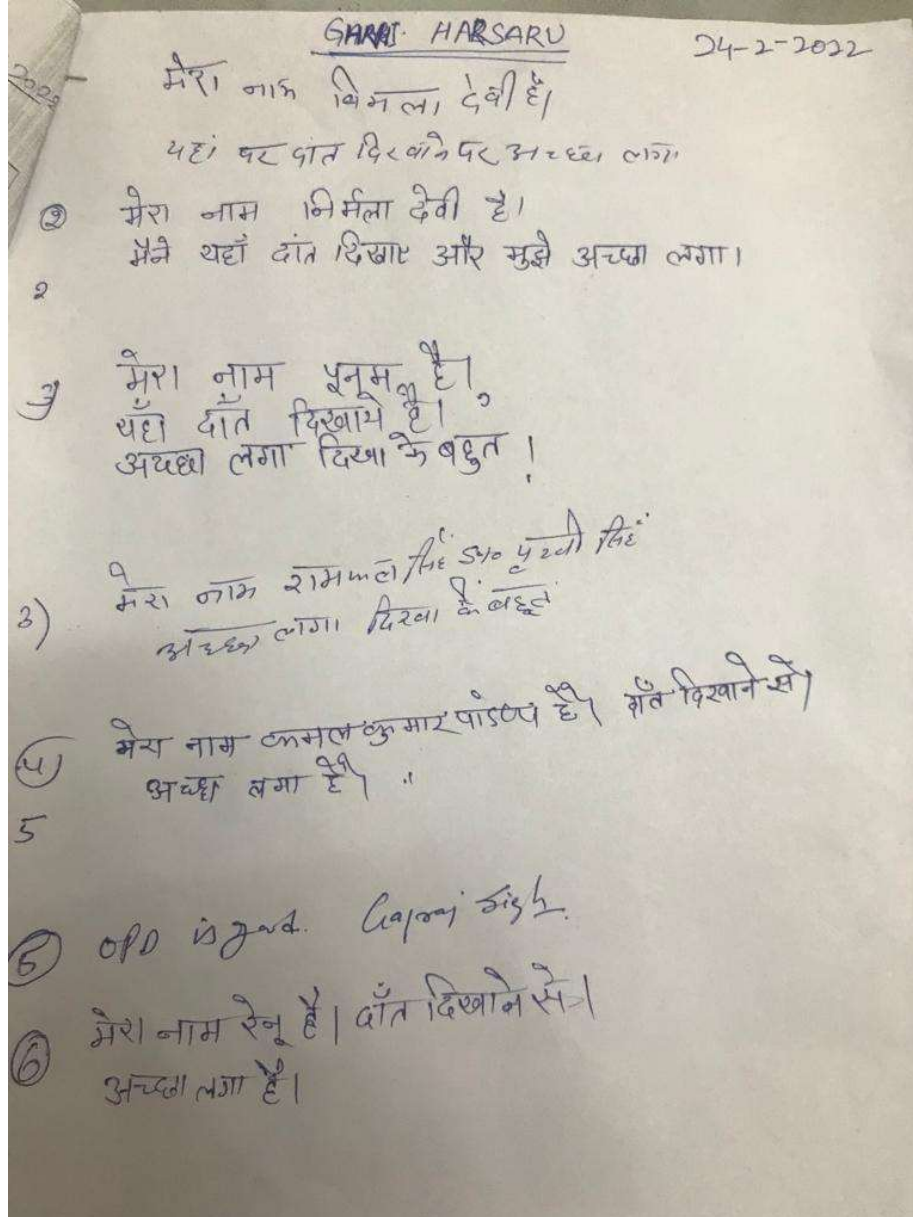 GARHI HARSARU
24-2-2022
2022
मेरा नाम बिमला देवी है।
यहां पर दांत दिखाने पर अच्छा लगा
② मेरा नाम निर्मला देवी है।
मैने यहाँ दांत दिखाए और मुझे अच्छा लगा।
2
3 मेरा नाम पूनम है।
यहाँ दाँत दिखाये है।
अच्छा लगा दिखा के बहुत।
3) मेरा नाम रामफल सिंह S/o पृथ्वी सिंह
अच्छा लगा दिखा के बहुत
(4) मेरा नाम कमल कुमार पांडेय है। दाँत दिखाने से।
अच्छा लगा है।
5
⑤ OPD is good. Gajraj Singh.
⑥ मेरा नाम रेनू है। दाँत दिखाने से।
अच्छा लगा है।